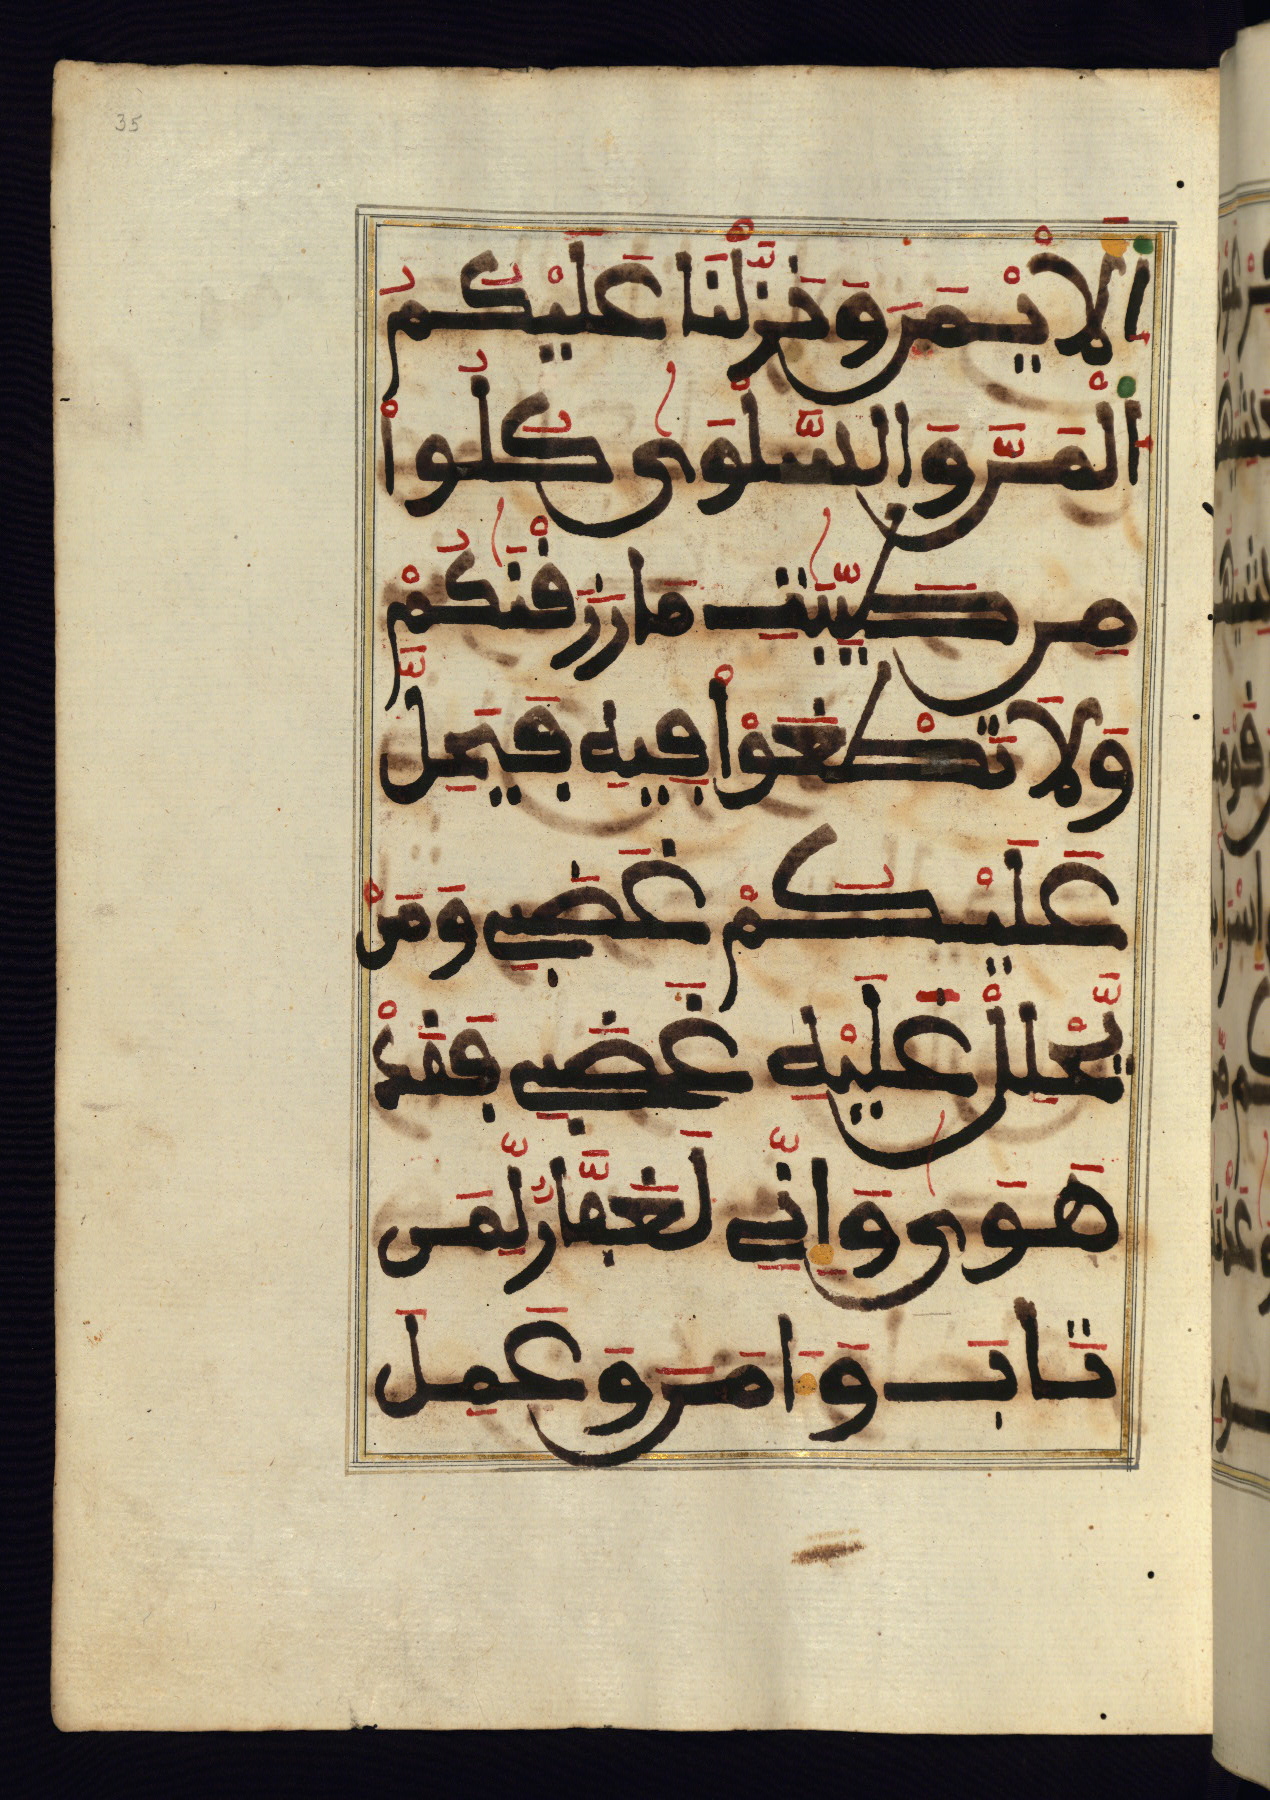 35
اَ۬لَايْمَنَ وَنَزَّلْنَا عَلَيْكُمُ
اُ۬لْمَنَّ وَالسَّلْوٰى كُلُواْ
مِن طَيِّبَٰتِ مَا رَزَقْنَٰكُمْ
وَلَا تَطْغَوْاْ فِيهِ فَيَحِلَّ
عَلَيْكُمْ غَضَبِي وَمَنْ
يَّحْلِلْ عَلَيْهِ غَضَبِي فَقَدْ
هَوٰى وَإِنِّي لَغَفَّارٌ لِّمَن
تَابَ وَءَامَنَ وَعَمِلَ